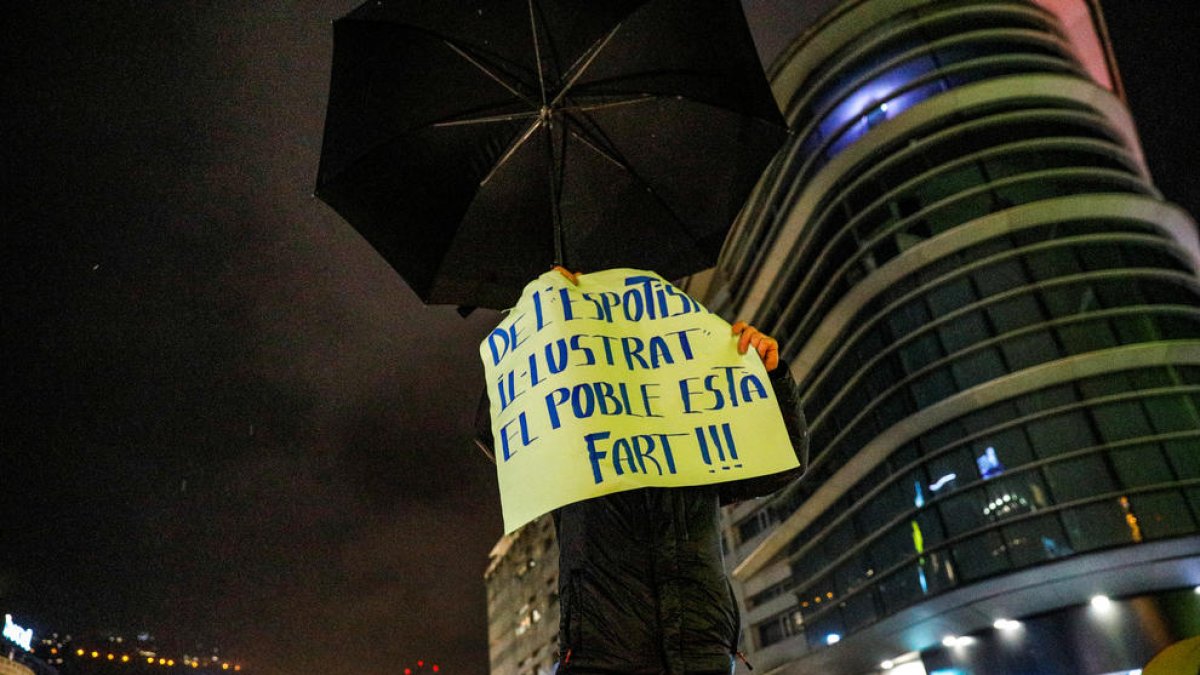 DE L'ESPOTISM
IL·LUSTRAT"
EL POBLE ESTÀ
FART!!!